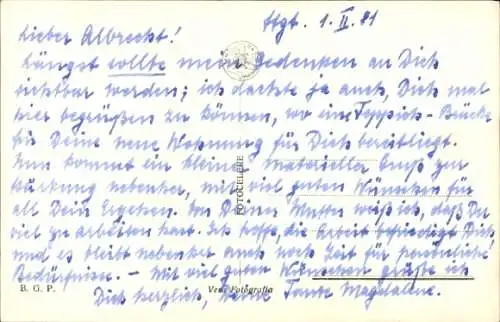 Stgt. 1. II. 81
Lieber Albrecht!
Längst sollte mein Gedenken an Dich
sichtbar werden; ich dachte ja auch, Dich mal
hier begrüßen zu können, wo eine Teppich-Brücke
für Deine neue Wohnung für Dich bereitliegt.
Nun kommt ein kleiner materieller Gruß zur
Stärkung nebenher, mit viel guten Wünschen für
all Dein Ergehen. Von Deiner Mutter weiß ich, daß Du
viel zu arbeiten hast. Ich hoffe, die Arbeit befriedigt Dich
und es bleibt nebenher auch noch Zeit für persönliche
Bedürfnisse. – Mit viel guten Wünschen grüße ich
Dich herzlich, Deine Tante Magdalene.
FOTOCELERE
B. G. P. Vera Fotografia